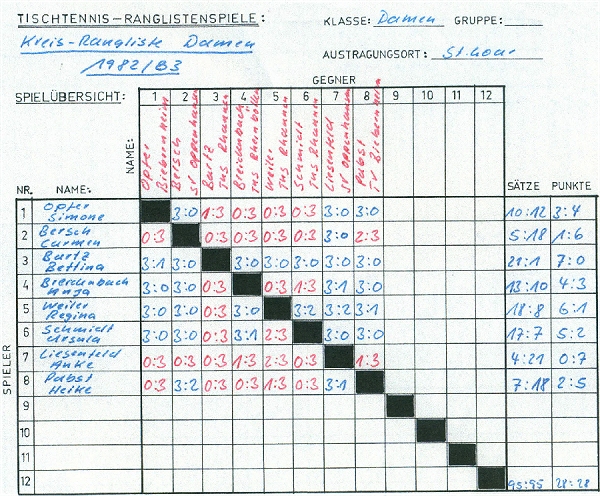 TISCHTENNIS-RANGLISTENSPIELE: KLASSE: Damen GRUPPE:
Kreis-Rangliste Damen
1982/83 AUSTRAGUNGSORT: St. Goar
GEGNER
SPIELÜBERSICHT: 1 2 3 4 5 6 7 8 9 10 11 12
NAME: Opfer Biebernheim Bersch SV Oppenhausen Bartz TuS Rhannen Breidenbach TuS Rheinböllen Weiler TuS Rhannen Schmidt TuS Rhannen Liesenfeld SV Oppenhausen Pabst TV Biebernheim
NR. NAME: SÄTZE PUNKTE
SPIELER
1 Opfer Simone 3:0 1:3 0:3 0:3 0:3 3:0 3:0 10:12 3:4
2 Bersch Carmen 0:3 0:3 0:3 0:3 0:3 3:0 2:3 5:18 1:6
3 Bartz Bettina 3:1 3:0 3:0 3:0 3:0 3:0 3:0 21:1 7:0
4 Breidenbach Anja 3:0 3:0 0:3 0:3 1:3 3:1 3:0 13:10 4:3
5 Weiler Regina 3:0 3:0 0:3 3:0 3:2 3:2 3:1 18:8 6:1
6 Schmidt Ursula 3:0 3:0 0:3 3:1 2:3 3:0 3:0 17:7 5:2
7 Liesenfeld Anke 0:3 0:3 0:3 1:3 2:3 0:3 1:3 4:21 0:7
8 Pabst Heike 0:3 3:2 0:3 0:3 1:3 0:3 3:1 7:18 2:5
9
10
11
12 95:95 28:28